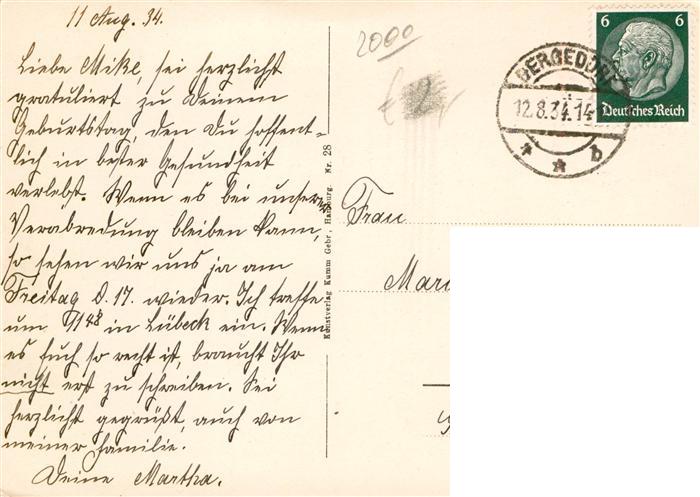 11 Aug. 34.
Liebe Mike, sei herzlichst
gratuliert zu Deinem
Geburtstag, den Du hoffent-
lich in bester Gesundheit
verlebst. Wenn es bei unserer
Verabredung bleiben kann,
so sehen wir uns ja am
Freitag d. 17. wieder. Ich treffe
um 1148 in Lübeck ein. Wenn
es Euch so recht ist, braucht Ihr
nicht erst zu schreiben. Sei
herzlich gegrüßt, auch von
meiner Familie.
Deine Martha.
Kunstverlag Kumm Gebr., Hamburg. Nr. 28
2000
6 6
Deutsches Reich
BERGEDORF
12.8.34.14
* * b
Frau